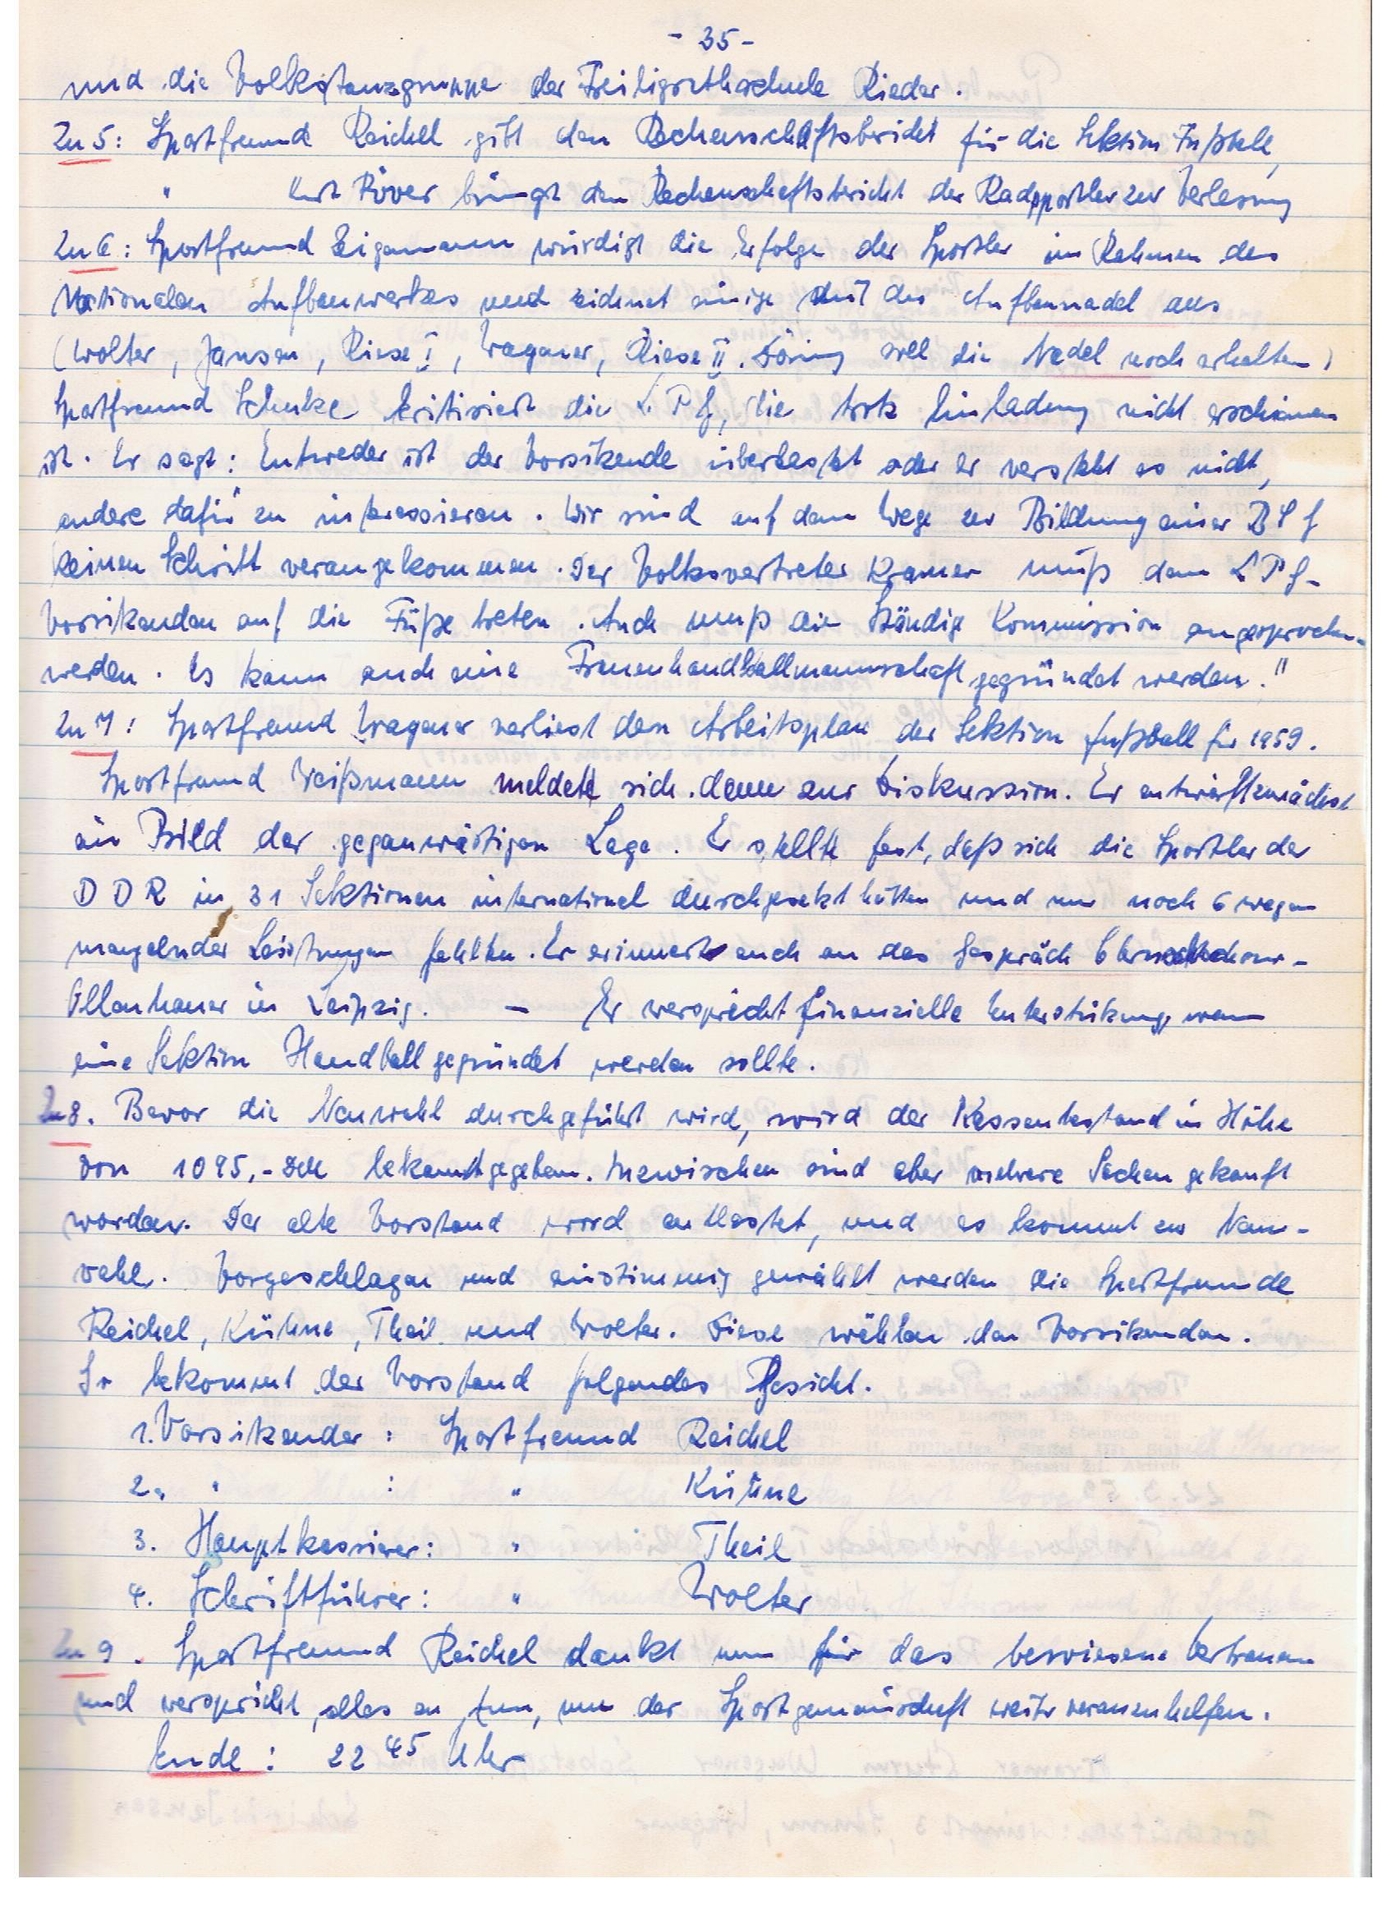 - 35 -
und die Volkstanzgruppe der Freiligrathschule Rieder.
Zu 5: Sportfreund Reichel gibt den Rechenschaftsbericht für die Sektion Fußball,
" Kurt Röver bringt den Rechenschaftsbericht der Radsportler zur Verlesung
Zu 6: Sportfreund Zigamann würdigt die Erfolge der Sportler im Rahmen des
Nationalen Aufbauwerkes und zeichnet einige mit der Aufbaunadel aus
(Wolter, Jansen, Riese I, Wagener, Riese II. Döring soll die Nadel noch erhalten)
Sportfreund Schulze kritisiert die LPG, die trotz Einladung nicht erschienen
ist. Er sagt: "Entweder ist der Vorsitzende überlastet oder er versteht es nicht,
andere dafür zu interessieren. Wir sind auf dem Wege zur Bildung einer BSG
keinen Schritt vorangekommen. Der Volksvertreter Kramer muß dem LPG-
Vorsitzenden auf die Füße treten. Auch muß die Ständige Kommission angesprochen
werden. Es kann auch eine Frauenhandballmannschaft gegründet werden."
Zu 7: Sportfreund Wagener verliest den Arbeitsplan der Sektion Fußball für 1959.
Sportfreund Weißmann meldete sich dann zur Diskussion. Er entwirft zunächst
ein Bild der gegenwärtigen Lage. Er stellte fest, daß sich die Sportler der
DDR in 31 Sektionen international durchgesetzt hätten und nur noch 6 wegen
mangelnder Leistungen fehlten. Er erinnert auch an das Gespräch
Ollenhauer in Leipzig. - Er verspricht finanzielle Unterstützung, wenn
eine Sektion Handball gegründet werden sollte.
Zu 8. Bevor die Neuwahl durchgeführt wird, wird der Kassenbestand in Höhe
von 1095,- DM bekanntgegeben. Inzwischen sind aber mehrere Sachen gekauft
worden. Der alte Vorstand wird entlastet, und es kommt zur Neu-
wahl. Vorgeschlagen und einstimmig gewählt werden die Sportfreunde
Reichel, Kühne, Theil und Wolter. Diese wählen den Vorsitzenden.
So bekommt der Vorstand folgendes Gesicht.
1. Vorsitzender: Sportfreund Reichel
2. " : " Kühne
3. Hauptkassierer: " Theil
4. Schriftführer: " Wolter
Zu 9. Sportfreund Reichel dankt nun für das bewiesene Vertrauen
und verspricht, alles zu tun, um der Sportgemeinschaft weiter voranzuhelfen.
Ende: 22 45 Uhr